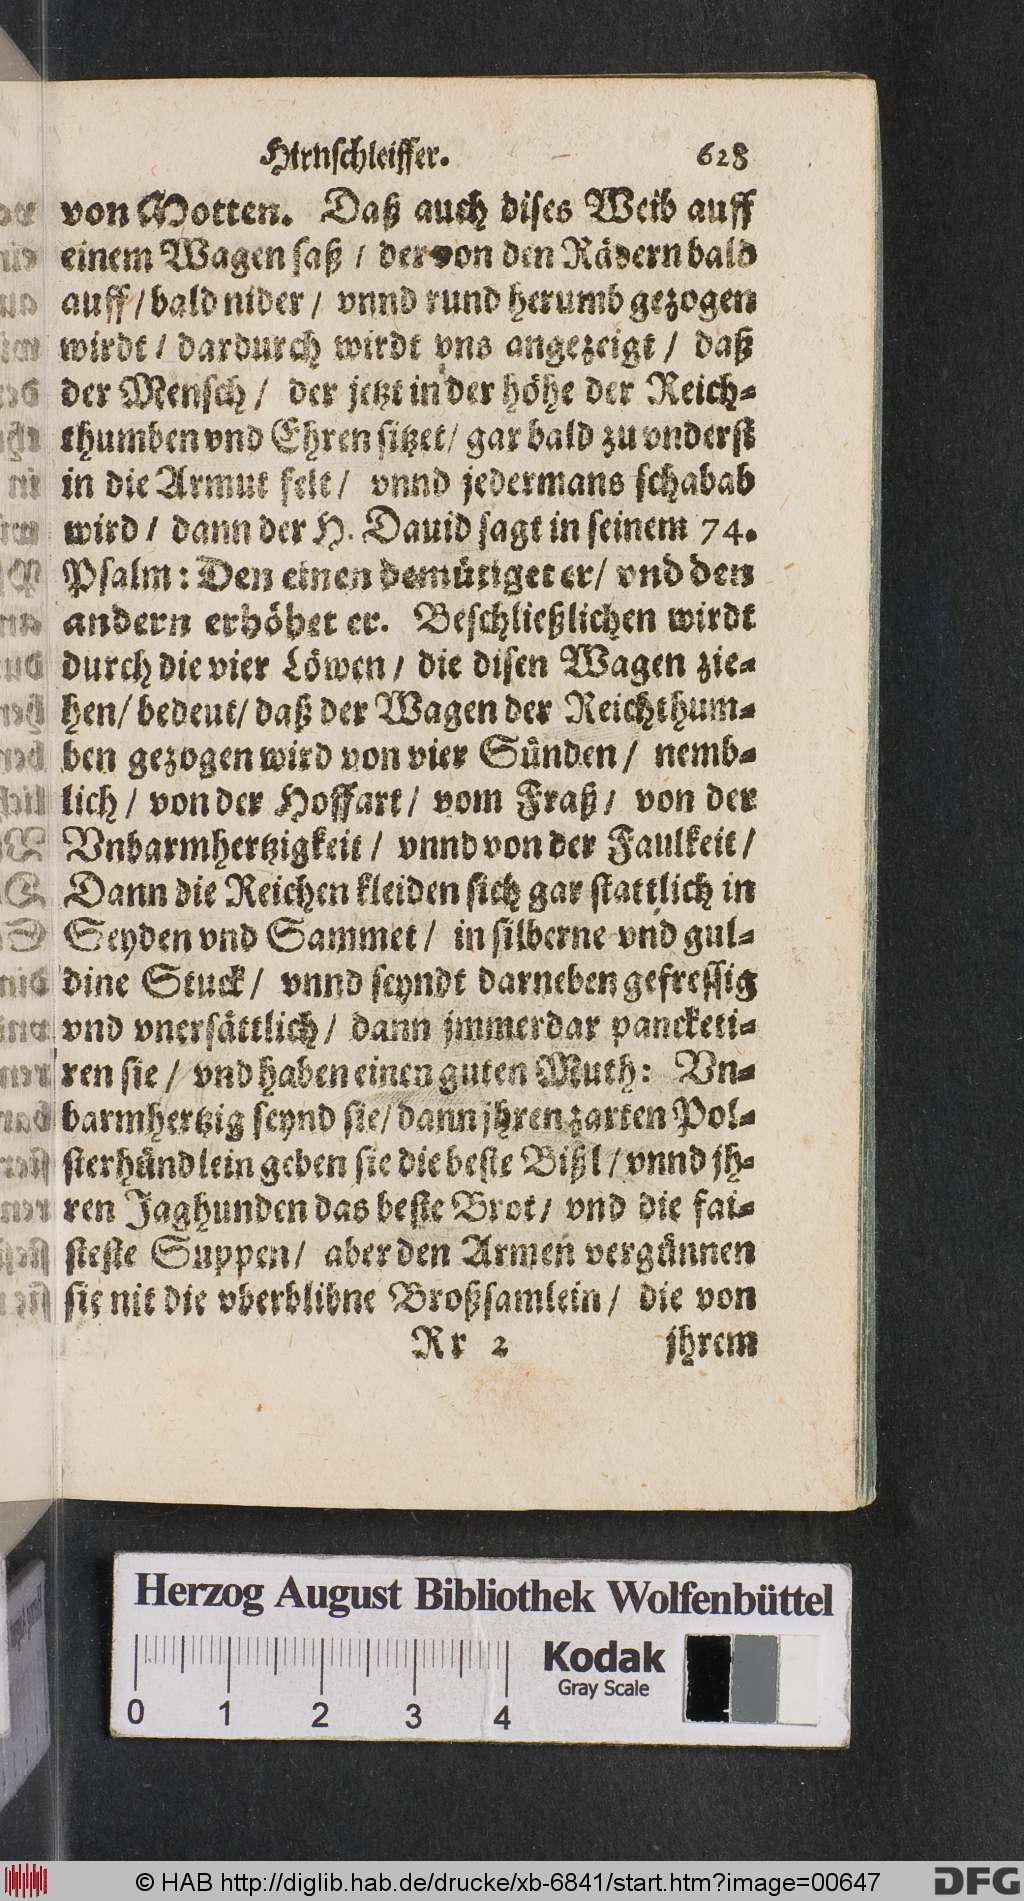 Hirnschleiffer. 628
von Motten. Daß auch dises Weib auff
einem Wagen saß / der von den Rädern bald
auff / bald nider / vnnd rund herumb gezogen
wirdt / dardurch wirdt vns angezeigt / daß
der Mensch / der jetzt in der höhe der Reich-
thumben vnd Ehren sitzet / gar bald zu vnderst
in die Armut felt / vnnd jedermans schabab
wird / dann der H. Dauid sagt in seinem 74.
Psalm: Den einen demütiget er / vnd den
andern erhöhet er. Beschließlichen wirdt
durch die vier Löwen / die disen Wagen zie-
hen / bedeut / daß der Wagen der Reichthum-
ben gezogen wird von vier Sünden / nemb-
lich / von der Hoffart / vom Fraß / von der
Vnbarmhertzigkeit / vnnd von der Faulkeit /
Dann die Reichen kleiden sich gar stattlich in
Seyden vnd Sammet / in silberne vnd gul-
dine Stuck / vnnd seyndt darneben gefressig
vnd vnersättlich / dann jmmerdar pancketi-
ren sie / vnd haben einen guten Muth: Vn-
barmhertzig seynd sie / dann jhren zarten Pol-
sterhündlein geben sie die beste Bißl / vnnd jh-
ren Jaghunden das beste Brot / vnd die fai-
steste Suppen / aber den Armen vergünnen
sie nit die vberblibne Broßsamlein / die von
Rr 2 jhrem
Herzog August Bibliothek Wolfenbüttel
Kodak
Gray Scale
0 1 2 3 4
© HAB http://diglib.hab.de/drucke/xb-6841/start.htm?image=00647
DFG